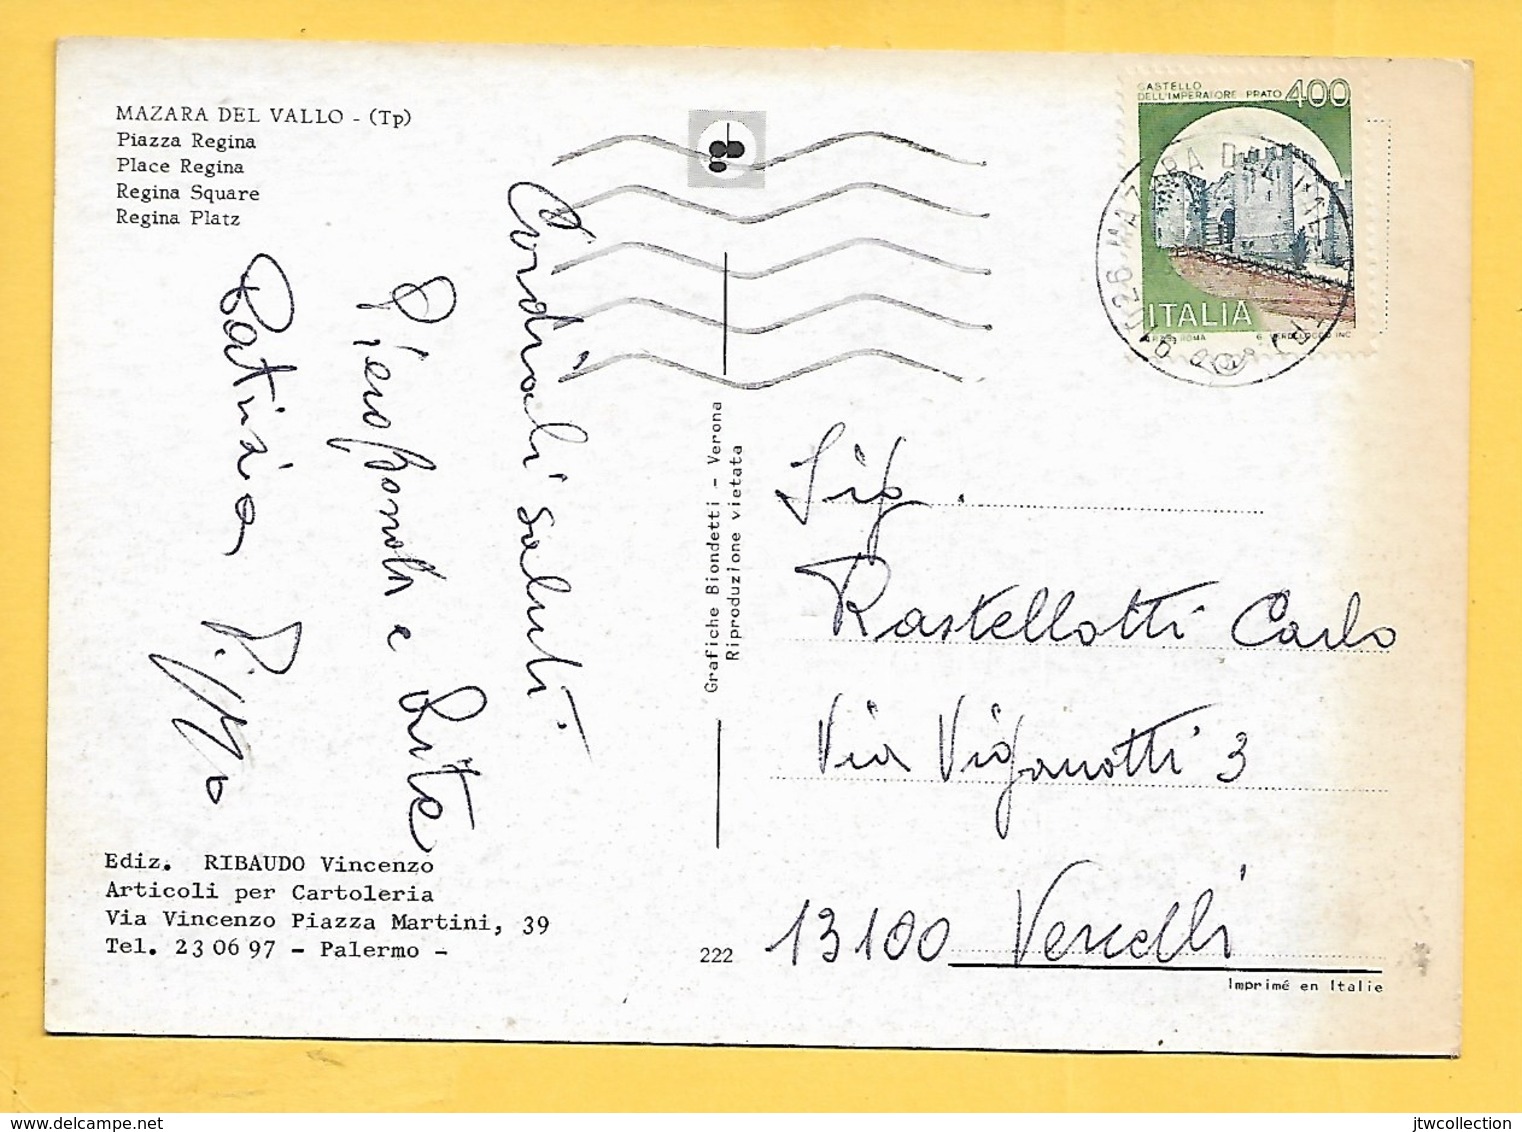 MAZARA DEL VALLO - (Tp)
Piazza Regina
Place Regina
Regina Square
Regina Platz
CASTELLO
DELL'IMPERATORE - PRATO 400
ITALIA
Cordiali saluti
Pieropaolo e Rita
Patrizia Pippo
Grafiche Biondetti - Verona
Riproduzione vietata
Sig.
Rastellotti Carlo
Via Viganotti 3
13100 Vercelli
Ediz. RIBAUDO Vincenzo
Articoli per Cartoleria
Via Vincenzo Piazza Martini, 39
Tel. 23 06 97 - Palermo -
222
Imprimé en Italie
jtwcollection